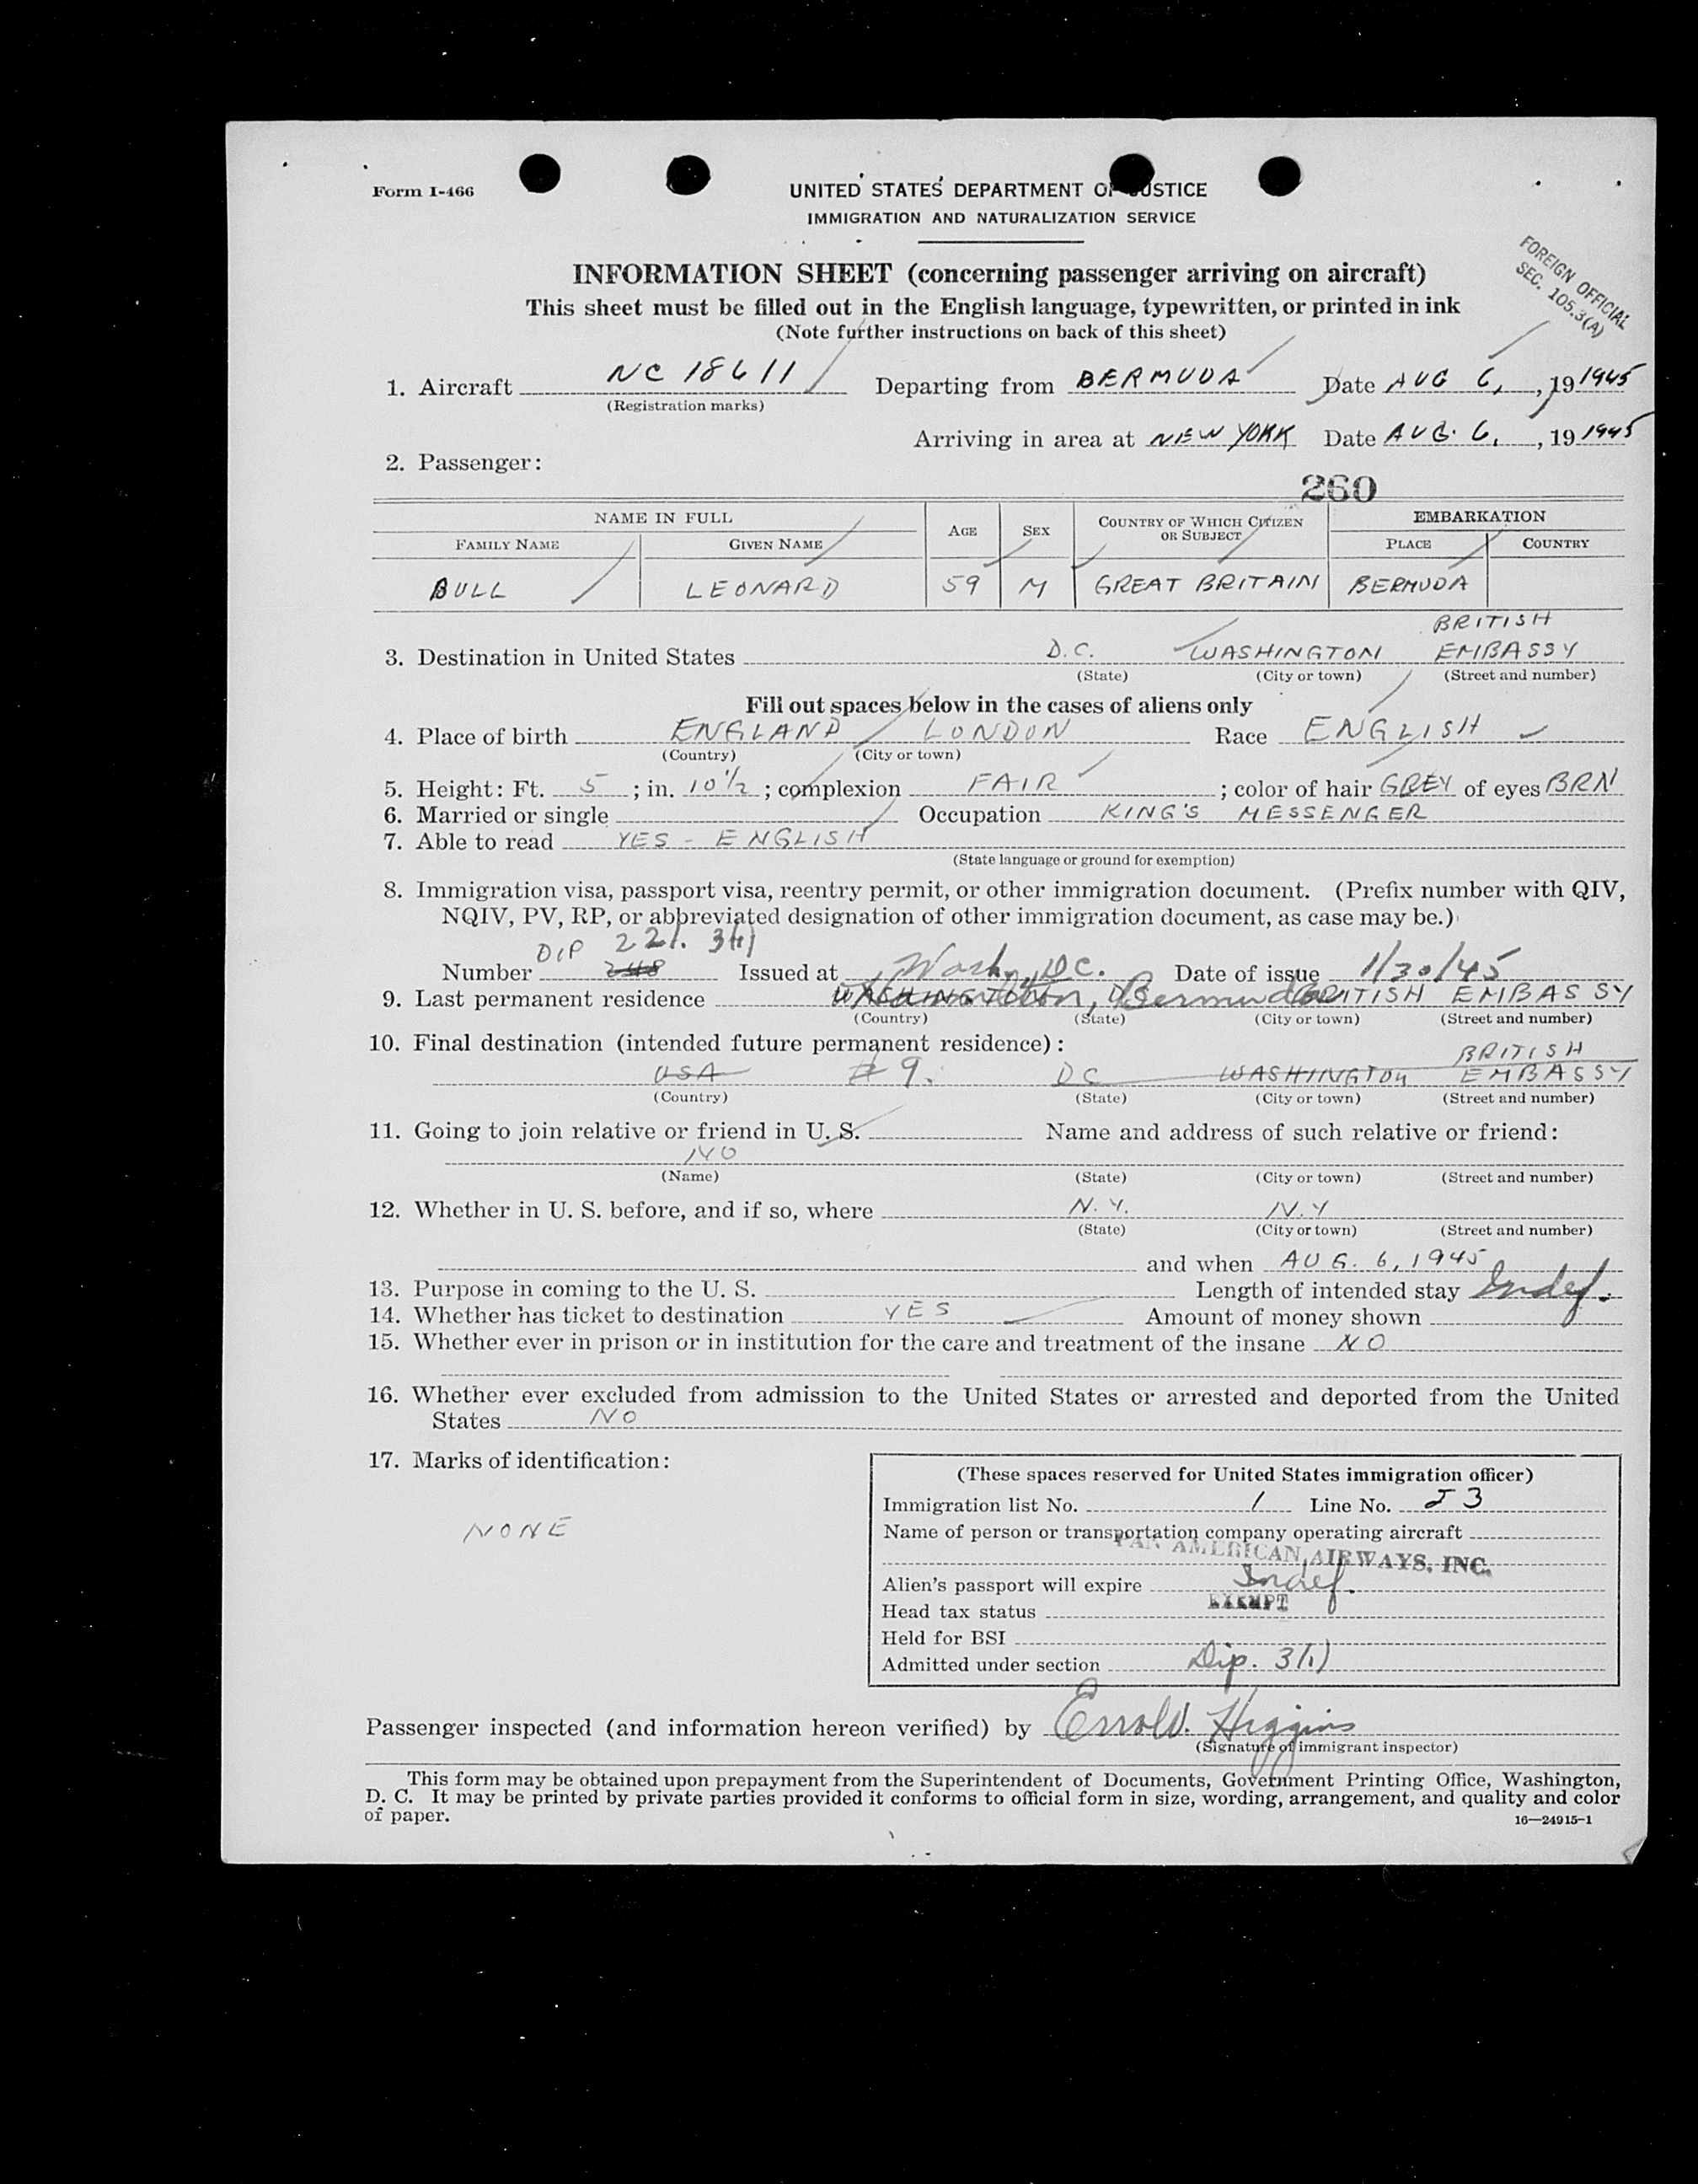 Form I-466
UNITED STATES DEPARTMENT OF JUSTICE
IMMIGRATION AND NATURALIZATION SERVICE
FOREIGN OFFICIAL
SEC. 105.3(A)
INFORMATION SHEET (concerning passenger arriving on aircraft)
This sheet must be filled out in the English language, typewritten, or printed in ink
(Note further instructions on back of this sheet)
1. Aircraft NC 18611 Departing from BERMUDA Date AUG 6, , 19 1945
(Registration marks)
Arriving in area at NEW YORK Date AUG. 6, , 19 1945
2. Passenger:
260
NAME IN FULL AGE SEX COUNTRY OF WHICH CITIZEN OR SUBJECT EMBARKATION
FAMILY NAME GIVEN NAME PLACE COUNTRY
BULL LEONARD 59 M GREAT BRITAIN BERMUDA
BRITISH
3. Destination in United States D.C. WASHINGTON EMBASSY
(State) (City or town) (Street and number)
Fill out spaces below in the cases of aliens only
4. Place of birth ENGLAND LONDON Race ENGLISH
(Country) (City or town)
5. Height: Ft. 5 ; in. 10½ ; complexion FAIR ; color of hair GREY of eyes BRN
6. Married or single Occupation KING'S MESSENGER
7. Able to read YES - ENGLISH
(State language or ground for exemption)
8. Immigration visa, passport visa, reentry permit, or other immigration document. (Prefix number with QIV,
NQIV, PV, RP, or abbreviated designation of other immigration document, as case may be.)
DIP 221. 3(1)
Number 248 Issued at Wash, D.C. Date of issue 1/30/45
9. Last permanent residence WASHINGTON, Bermuda BRITISH EMBASSY
(Country) (State) (City or town) (Street and number)
10. Final destination (intended future permanent residence):
BRITISH
USA # 9. DC WASHINGTON EMBASSY
(Country) (State) (City or town) (Street and number)
11. Going to join relative or friend in U. S. Name and address of such relative or friend:
NO
(Name) (State) (City or town) (Street and number)
12. Whether in U. S. before, and if so, where N. Y. N. Y
(State) (City or town) (Street and number)
and when AUG. 6, 1945
13. Purpose in coming to the U. S. Length of intended stay Indef.
14. Whether has ticket to destination YES Amount of money shown
15. Whether ever in prison or in institution for the care and treatment of the insane NO
16. Whether ever excluded from admission to the United States or arrested and deported from the United
States NO
17. Marks of identification:
NONE
(These spaces reserved for United States immigration officer)
Immigration list No. 1 Line No. 3
Name of person or transportation company operating aircraft
PAN AMERICAN AIRWAYS, INC.
Alien's passport will expire Indef.
Head tax status EXEMPT
Held for BSI
Admitted under section Dip. 3(1)
Passenger inspected (and information hereon verified) by Errol W. Higgins
(Signature of immigrant inspector)
This form may be obtained upon prepayment from the Superintendent of Documents, Government Printing Office, Washington,
D. C. It may be printed by private parties provided it conforms to official form in size, wording, arrangement, and quality and color
of paper.
16—24915-1